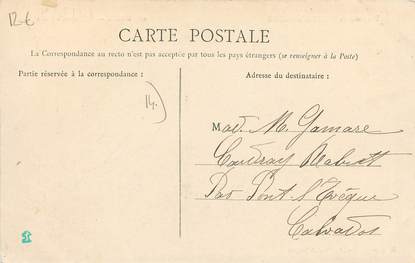 12 €
CARTE POSTALE
La Correspondance au recto n'est pas acceptée par tous les pays étrangers (se renseigner à la Poste)
Partie réservée à la correspondance :
Adresse du destinataire :
14.
Mad. M. Gamare
Par Pont l'Evêque
Calvados